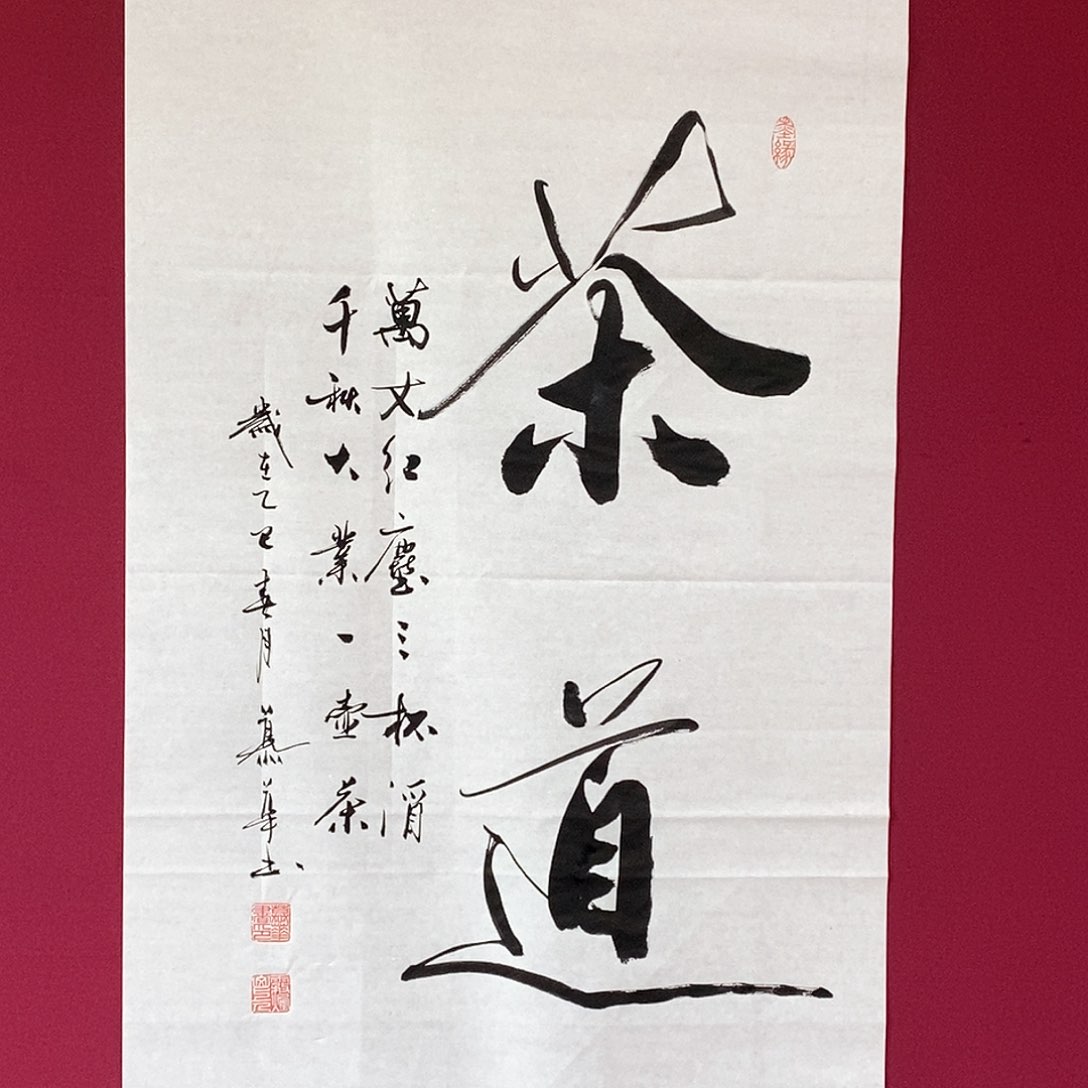 墨緣
茶道
萬丈紅塵三杯酒
千秋大業一壺茶
歲在乙巳春月 慕華書